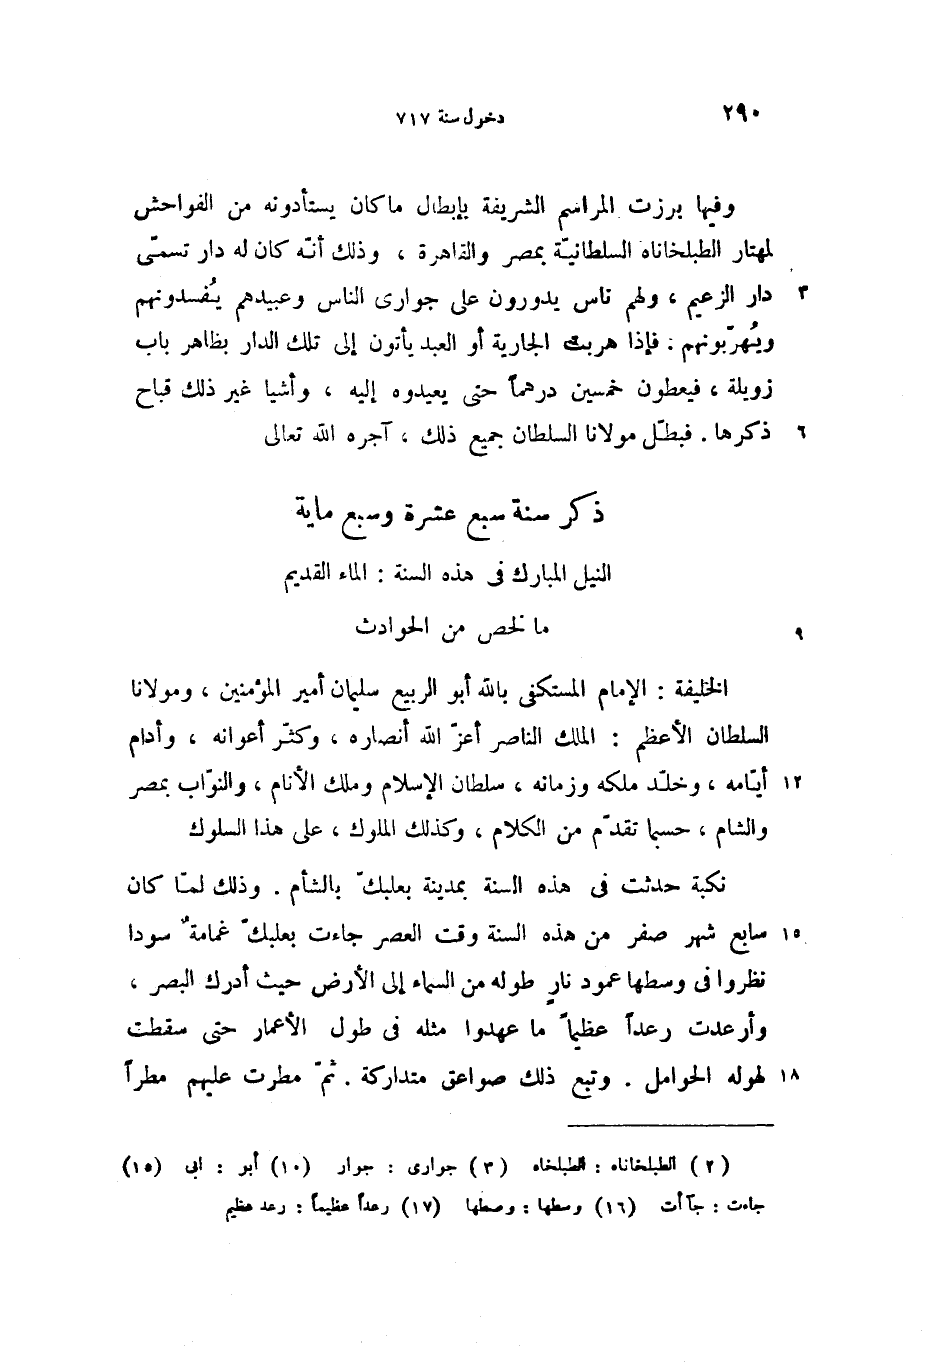 ٢٩٠ دخول سنة ٧١٧
وفيها برزت المراسم الشريفة بإبطال ما كان يستأدونه من الفواحش
لمهتار الطبلخاناه السلطانيّة بمصر والقاهرة ، وذلك أنّه كان له دار تسمّى
٣ دار الزعيم ، ولهم ناس يدورون على جوارى الناس وعبيدهم يُفسدونهم
ويُهرّبونهم : فإذا هربت الجارية أو العبد يأتون إلى تلك الدار بظاهر باب
زويلة ، فيعطون خمسين درهماً حتى يعيدوه إليه ، وأشيا غير ذلك قباح
٦ ذكرها . فبطّل مولانا السلطان جميع ذلك ، آجره الله تعالى
ذكر سنة سبع عشرة وسبع ماية
النيل المبارك فى هذه السنة : الماء القديم
٩ ما لخص من الحوادث
الخليفة : الإمام المستكفى بالله أبو الربيع سليمان أمير المؤمنين ، ومولانا
السلطان الأعظم : الملك الناصر أعزّ الله أنصاره ، وكثّر أعوانه ، وأدام
١٢ أيّامه ، وخلّد ملكه وزمانه ، سلطان الإسلام وملك الأنام ، والنوّاب بمصر
والشام ، حسبما تقدّم من الكلام ، وكذلك الملوك ، على هذا السلوك
نكبة حدثت فى هذه السنة بمدينة بعلبكّ بالشأم . وذلك لمّا كان
١٥ سابع شهر صفر من هذه السنة وقت العصر جاءت بعلبكّ غمامةٌ سودا
نظروا فى وسطها عمود نارٍ طوله من السماء إلى الأرض حيث أدرك البصر ،
وأرعدت رعداً عظيماً ما عهدوا مثله فى طول الأعمار حتى سقطت
١٨ لهوله الحوامل . وتبع ذلك صواعق متداركة . ثمّ مطرت عليهم مطراً
(٢) الطبلخاناه : الطبلخاه (٣) جوارى : جوار (١٠) أبو : ابى (١٥)
جاءت : جآأت (١٦) وسطها : وصطها (١٧) رعداً عظيماً : رعد عظيم